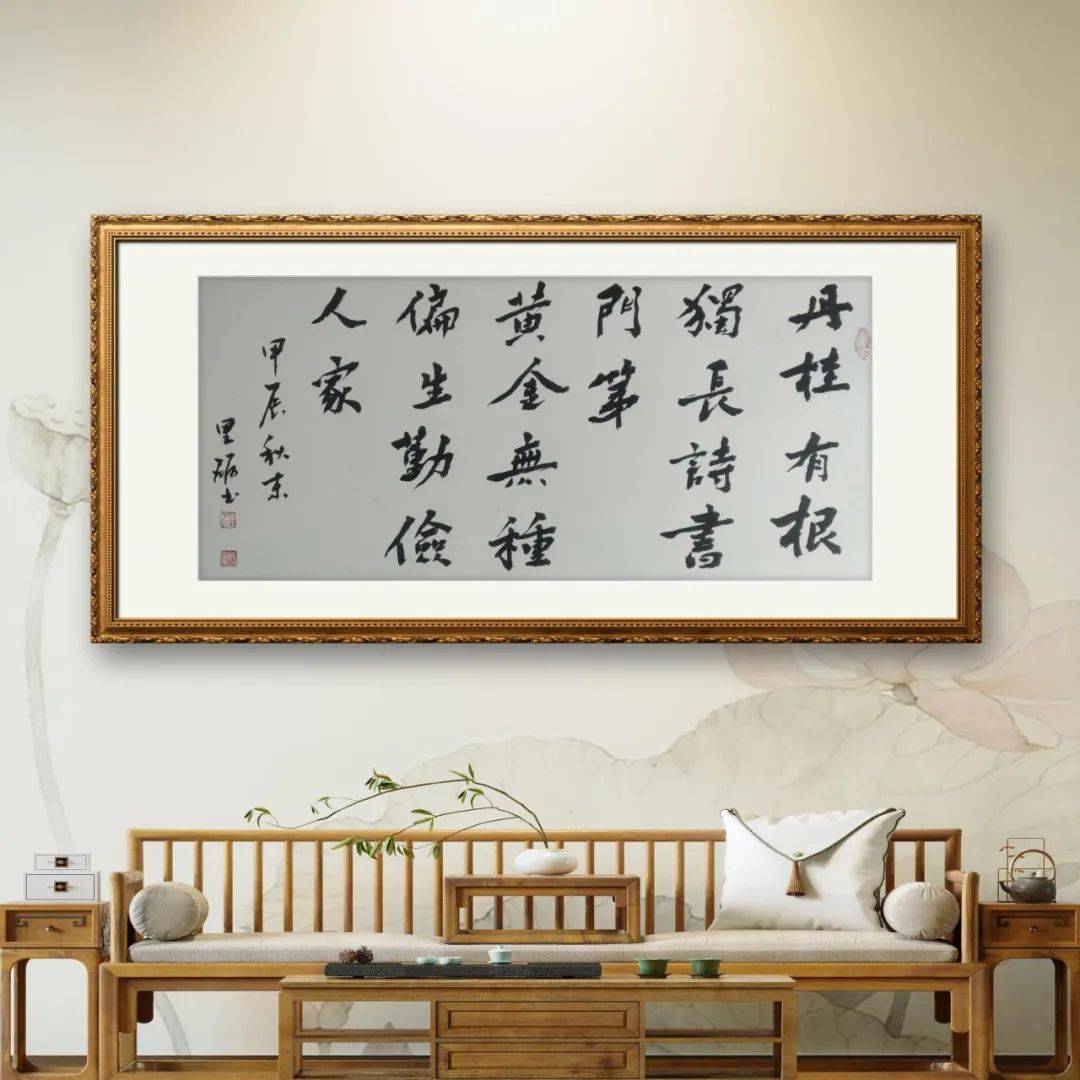 丹桂有根
獨長詩書
門第
黄金無種
偏生勤儉
人家
甲辰秋
書